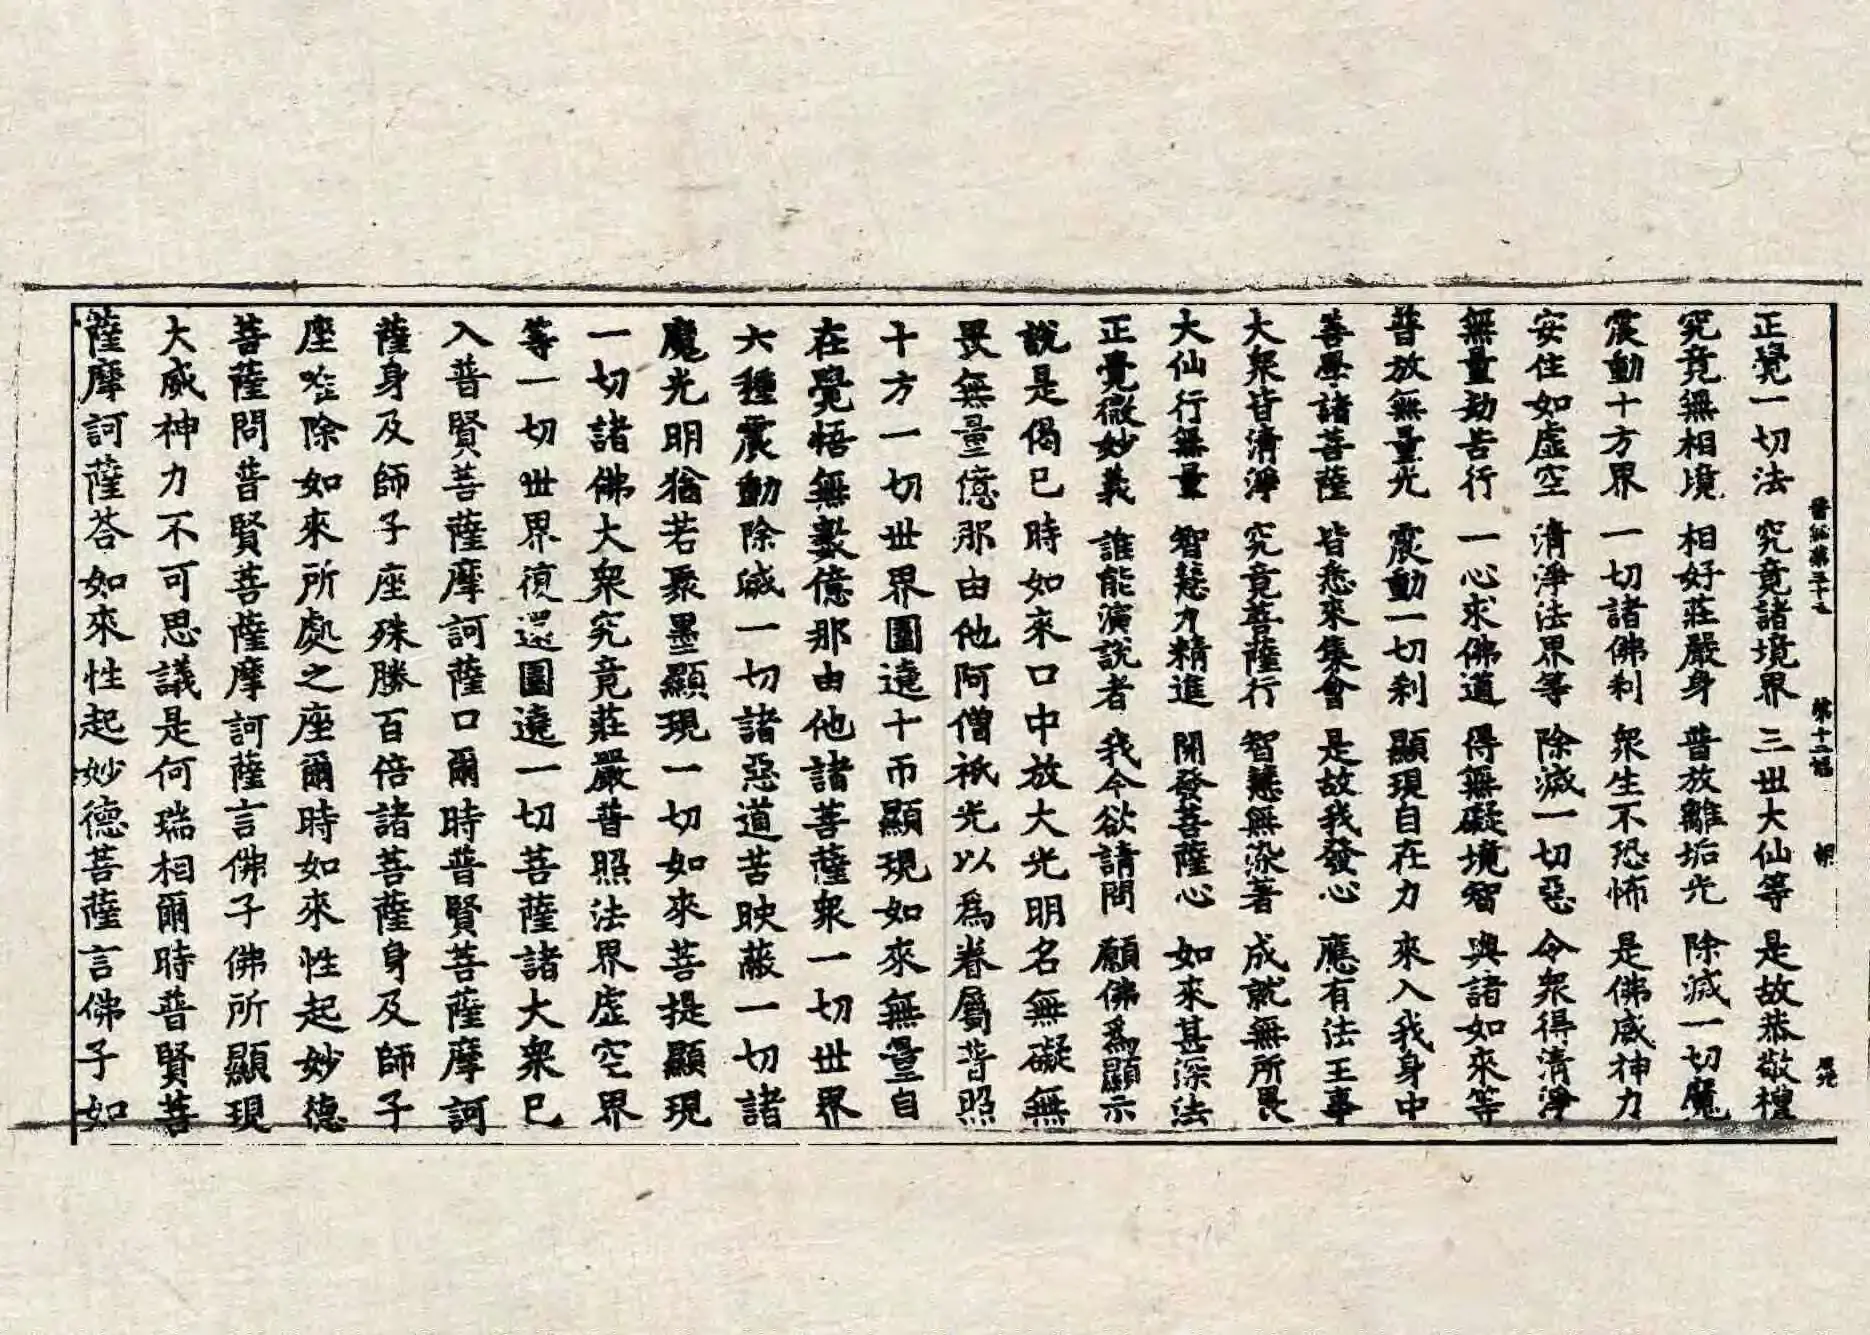 正覺一切法 究竟諸境界 三世大仙等 是故恭敬禮
晉經第三十三 第十二張 朝
究竟無相境 相好莊嚴身 普放離垢光 除滅一切魔
震動十方界 一切諸佛刹 衆生不恐怖 是佛威神力
安住如虛空 清淨法界等 除滅一切惡 令衆得清淨
無量劫苦行 一心求佛道 得無礙境智 與諸如來等
普放無量光 震動一切刹 顯現自在力 來入我身中
善學諸菩薩 皆悉來集會 是故我發心 應有法王事
大衆皆清淨 究竟菩薩行 智慧無染著 成就無所畏
大仙行無量 智慧力精進 開發菩薩心 如來甚深法
正覺微妙義 誰能演說者 我今欲請問 願佛爲顯示
說是偈已時如來口中放大光明名無礙無
畏無量億那由他阿僧祇光以爲眷屬普照
十方一切世界圍遶十帀顯現如來無量自
在覺悟無數億那由他諸菩薩衆一切世界
六種震動除滅一切諸惡道苦映蔽一切諸
魔光明猶若聚墨顯現一切如來菩提顯現
一切諸佛大衆究竟莊嚴普照法界虛空界
等一切世界復還圍遶一切菩薩諸大衆已
入普賢菩薩摩訶薩口爾時普賢菩薩摩訶
薩身及師子座殊勝百倍諸菩薩身及師子
座唯除如來所處之座爾時如來性起妙德
菩薩問普賢菩薩摩訶薩言佛子佛所顯現
大威神力不可思議是何瑞相爾時普賢菩
薩摩訶薩荅如來性起妙德菩薩言佛子如